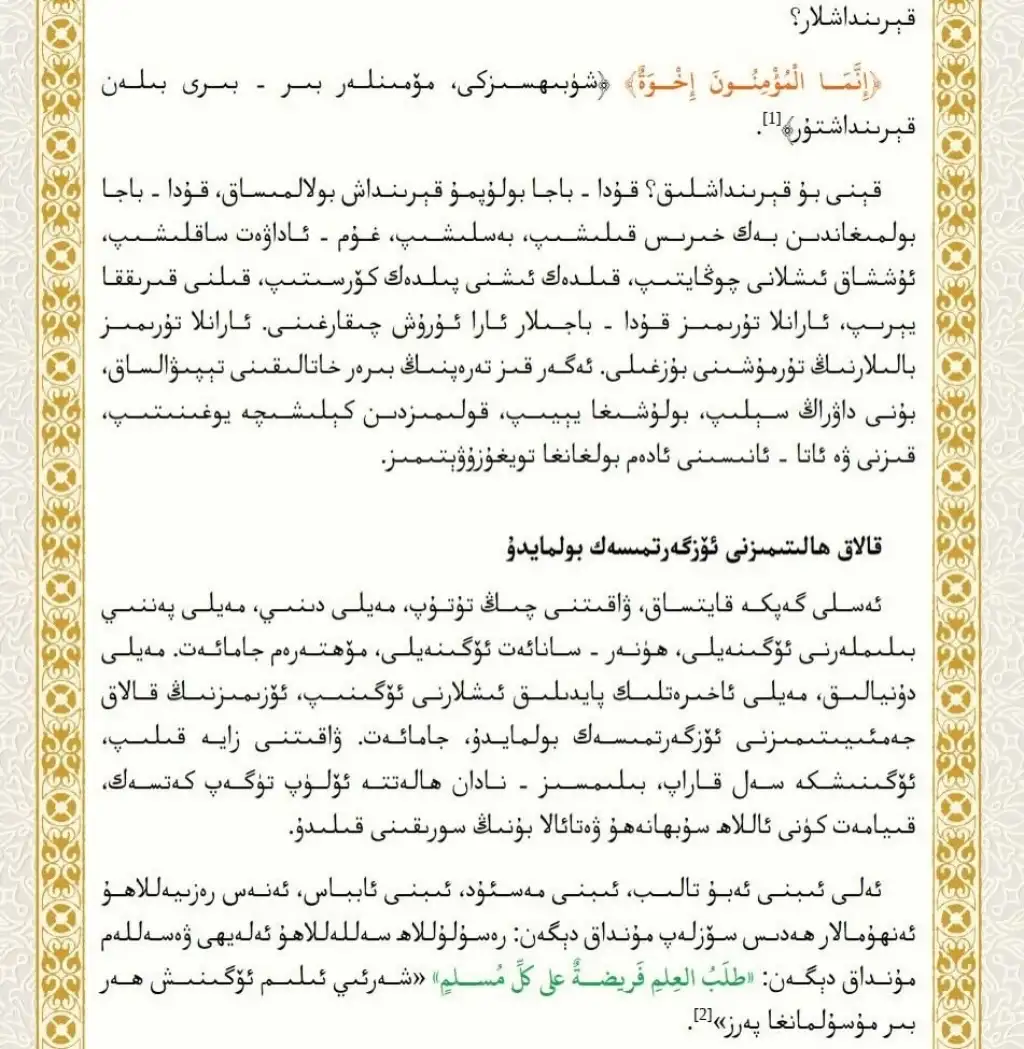 قېرىنداشلار؟
﴿إِنَّمَا الْمُؤْمِنُونَ إِخْوَةٌ﴾ ﴿شۈبھىسىزكى، مۆمىنلەر بىر - بىرى بىلەن
قېرىنداشتۇر﴾[1].
قېنى بۇ قېرىنداشلىق؟ قۇدا - باجا بولۇپمۇ قېرىنداش بولالمىساق، قۇدا - باجا
بولمىغاندىن بەك خىرىس قىلىشىپ، بەسلىشىپ، غۇم - ئاداۋەت ساقلىشىپ،
ئۇششاق ئىشلانى چوڭايتىپ، قىلدەك ئىشنى پىلدەك كۆرسىتىپ، قىلنى قىرىققا
يېرىپ، ئارانلا تۇرىمىز قۇدا - باجىلار ئارا ئۇرۇش چىقارغىنى. ئارانلا تۇرىمىز
بالىلارنىڭ تۇرمۇشىنى بۇزغىلى. ئەگەر قىز تەرەپنىڭ بىرەر خاتالىقىنى تېپىۋالساق،
بۇنى داۋراڭ سېلىپ، بولۇشىغا يېيىپ، قولىمىزدىن كېلىشىچە يوغىنىتىپ،
قىزنى ۋە ئاتا - ئانىسىنى ئادەم بولغانغا تويغۇزۇۋېتىمىز.
قالاق ھالىتىمىزنى ئۆزگەرتمىسەك بولمايدۇ
ئەسلى گەپكە قايتساق، ۋاقىتنى چىڭ تۇتۇپ، مەيلى دىنىي، مەيلى پەننىي
بىلىملەرنى ئۆگىنەيلى، ھۈنەر - سانائەت ئۆگىنەيلى، مۆھتەرەم جامائەت. مەيلى
دۇنيالىق، مەيلى ئاخىرەتلىك پايدىلىق ئىشلارنى ئۆگىنىپ، ئۆزىمىزنىڭ قالاق
جەمئىيىتىمىزنى ئۆزگەرتمىسەك بولمايدۇ، جامائەت. ۋاقىتنى زايە قىلىپ،
ئۆگىنىشكە سەل قاراپ، بىلىمسىز - نادان ھالەتتە ئۆلۈپ تۈگەپ كەتسەك،
قىيامەت كۈنى ئاللاھ سۇبھانەھۇ ۋەتائالا بۇنىڭ سورىقىنى قىلىدۇ.
ئەلى ئىبنى ئەبۇ تالىب، ئىبنى مەسئۇد، ئىبنى ئابباس، ئەنەس رەزىيەللاھۇ
ئەنھۇمالار ھەدىس سۆزلەپ مۇنداق دېگەن: رەسۇلۇللاھ سەللەللاھۇ ئەلەيھى ۋەسەللەم
مۇنداق دېگەن: «طلَبُ العِلمِ فَريضةٌ على كلِّ مُسلمٍ» «شەرئىي ئىلىم ئۆگىنىش ھەر
بىر مۇسۇلمانغا پەرز»[2].